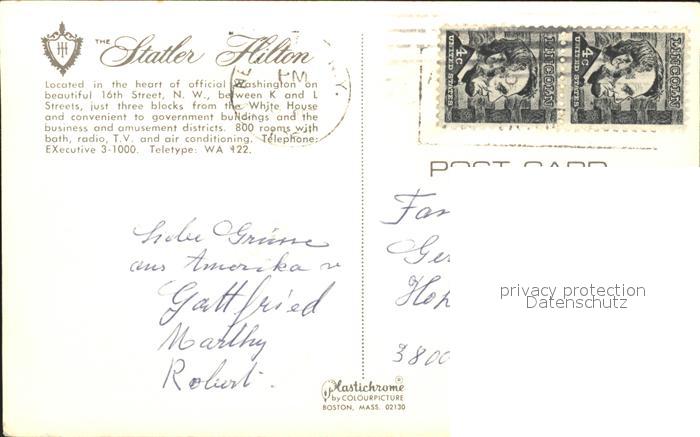 THE Statler Hilton
Located in the heart of official Washington on
beautiful 16th Street, N. W., between K and L
Streets, just three blocks from the White House
and convenient to government buildings and the
business and amusement districts. 800 rooms with
bath, radio, T.V. and air conditioning. Telephone:
EXecutive 3-1000. Teletype: WA 122.
N.Y.
PM
4c UNITED STATES LINCOLN
4c UNITED STATES LINCOLN
POST CARD
Liebe Grüsse
aus Amerika v
Gottfried
Marthy
Robert.
Fam
Ger
Hop
3800
privacy protection
Datenschutz
Plastichrome®
by COLOURPICTURE
BOSTON, MASS. 02130